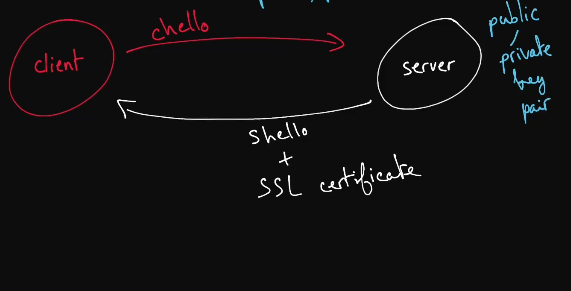 chello
client
server
public
private
key
pair
shello
+
SSL certificate